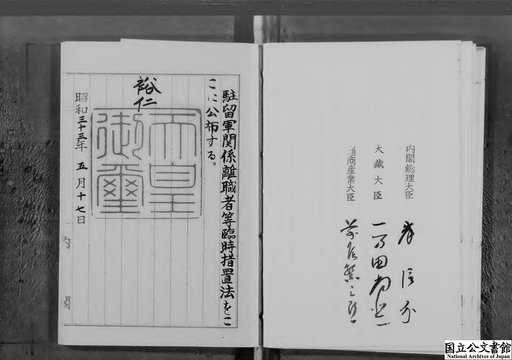 駐留軍関係離職者等臨時措置法をこ
こに公布する。
裕仁
天皇
御璽
昭和三十三年五月十七日
内閣
内閣総理大臣
岸信介
大蔵大臣
一万田尚登
通商産業大臣
前尾繁三郎
国立公文書館
National Archives of Japan